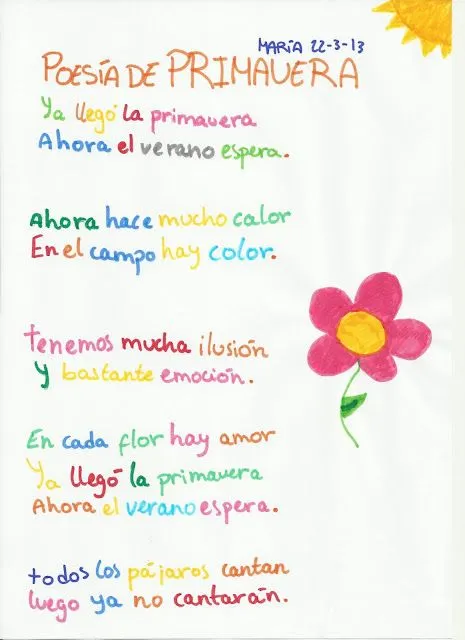 MARÍA 22-3-13
POESÍA DE PRIMAVERA
Ya llegó la primavera
Ahora el verano espera.
Ahora hace mucho calor
En el campo hay color.
tenemos mucha ilusión
y bastante emoción.
En cada flor hay amor
Ya llegó la primavera
Ahora el verano espera.
todos los pájaros cantan
luego ya no cantarán.